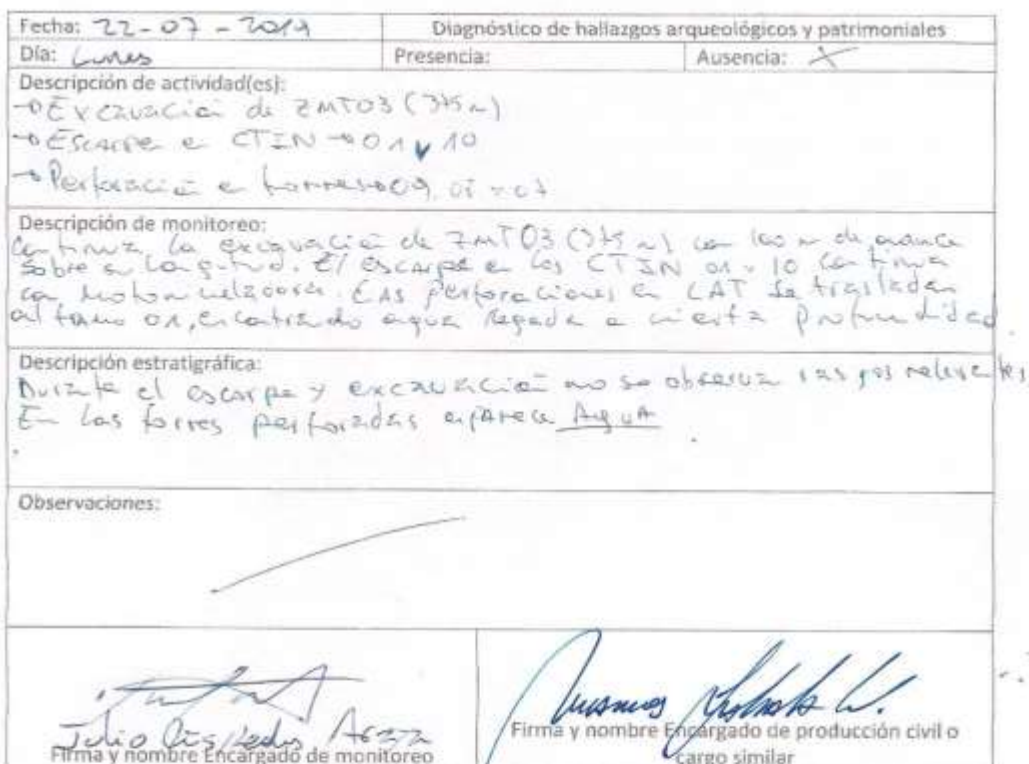 Fecha: 22-07-2019 Diagnóstico de hallazgos arqueológicos y patrimoniales
Día: Lunes Presencia: Ausencia: X
Descripción de actividad(es):
→ Excavación de ZMT03 (375 m)
→ Escarpe en CTIN → 01 y 10
→ Perforación en 09, 07
Descripción de monitoreo:
Continua la excavación de ZMT03 (375 m) con 100 m de avance
sobre su longitud. El escarpe en los CTIN 01 y 10 continua
con motoniveladora. Las perforaciones en LAT se trasladan
al tramo 01, encontrando agua a cierta profundidad.
Descripción estratigráfica:
Durante el escarpe y excavación no se observan rasgos relevantes
En las torres perforadas aparece Agua
Observaciones:
Julio
Firma y nombre Encargado de monitoreo
Firma y nombre Encargado de producción civil o
cargo similar